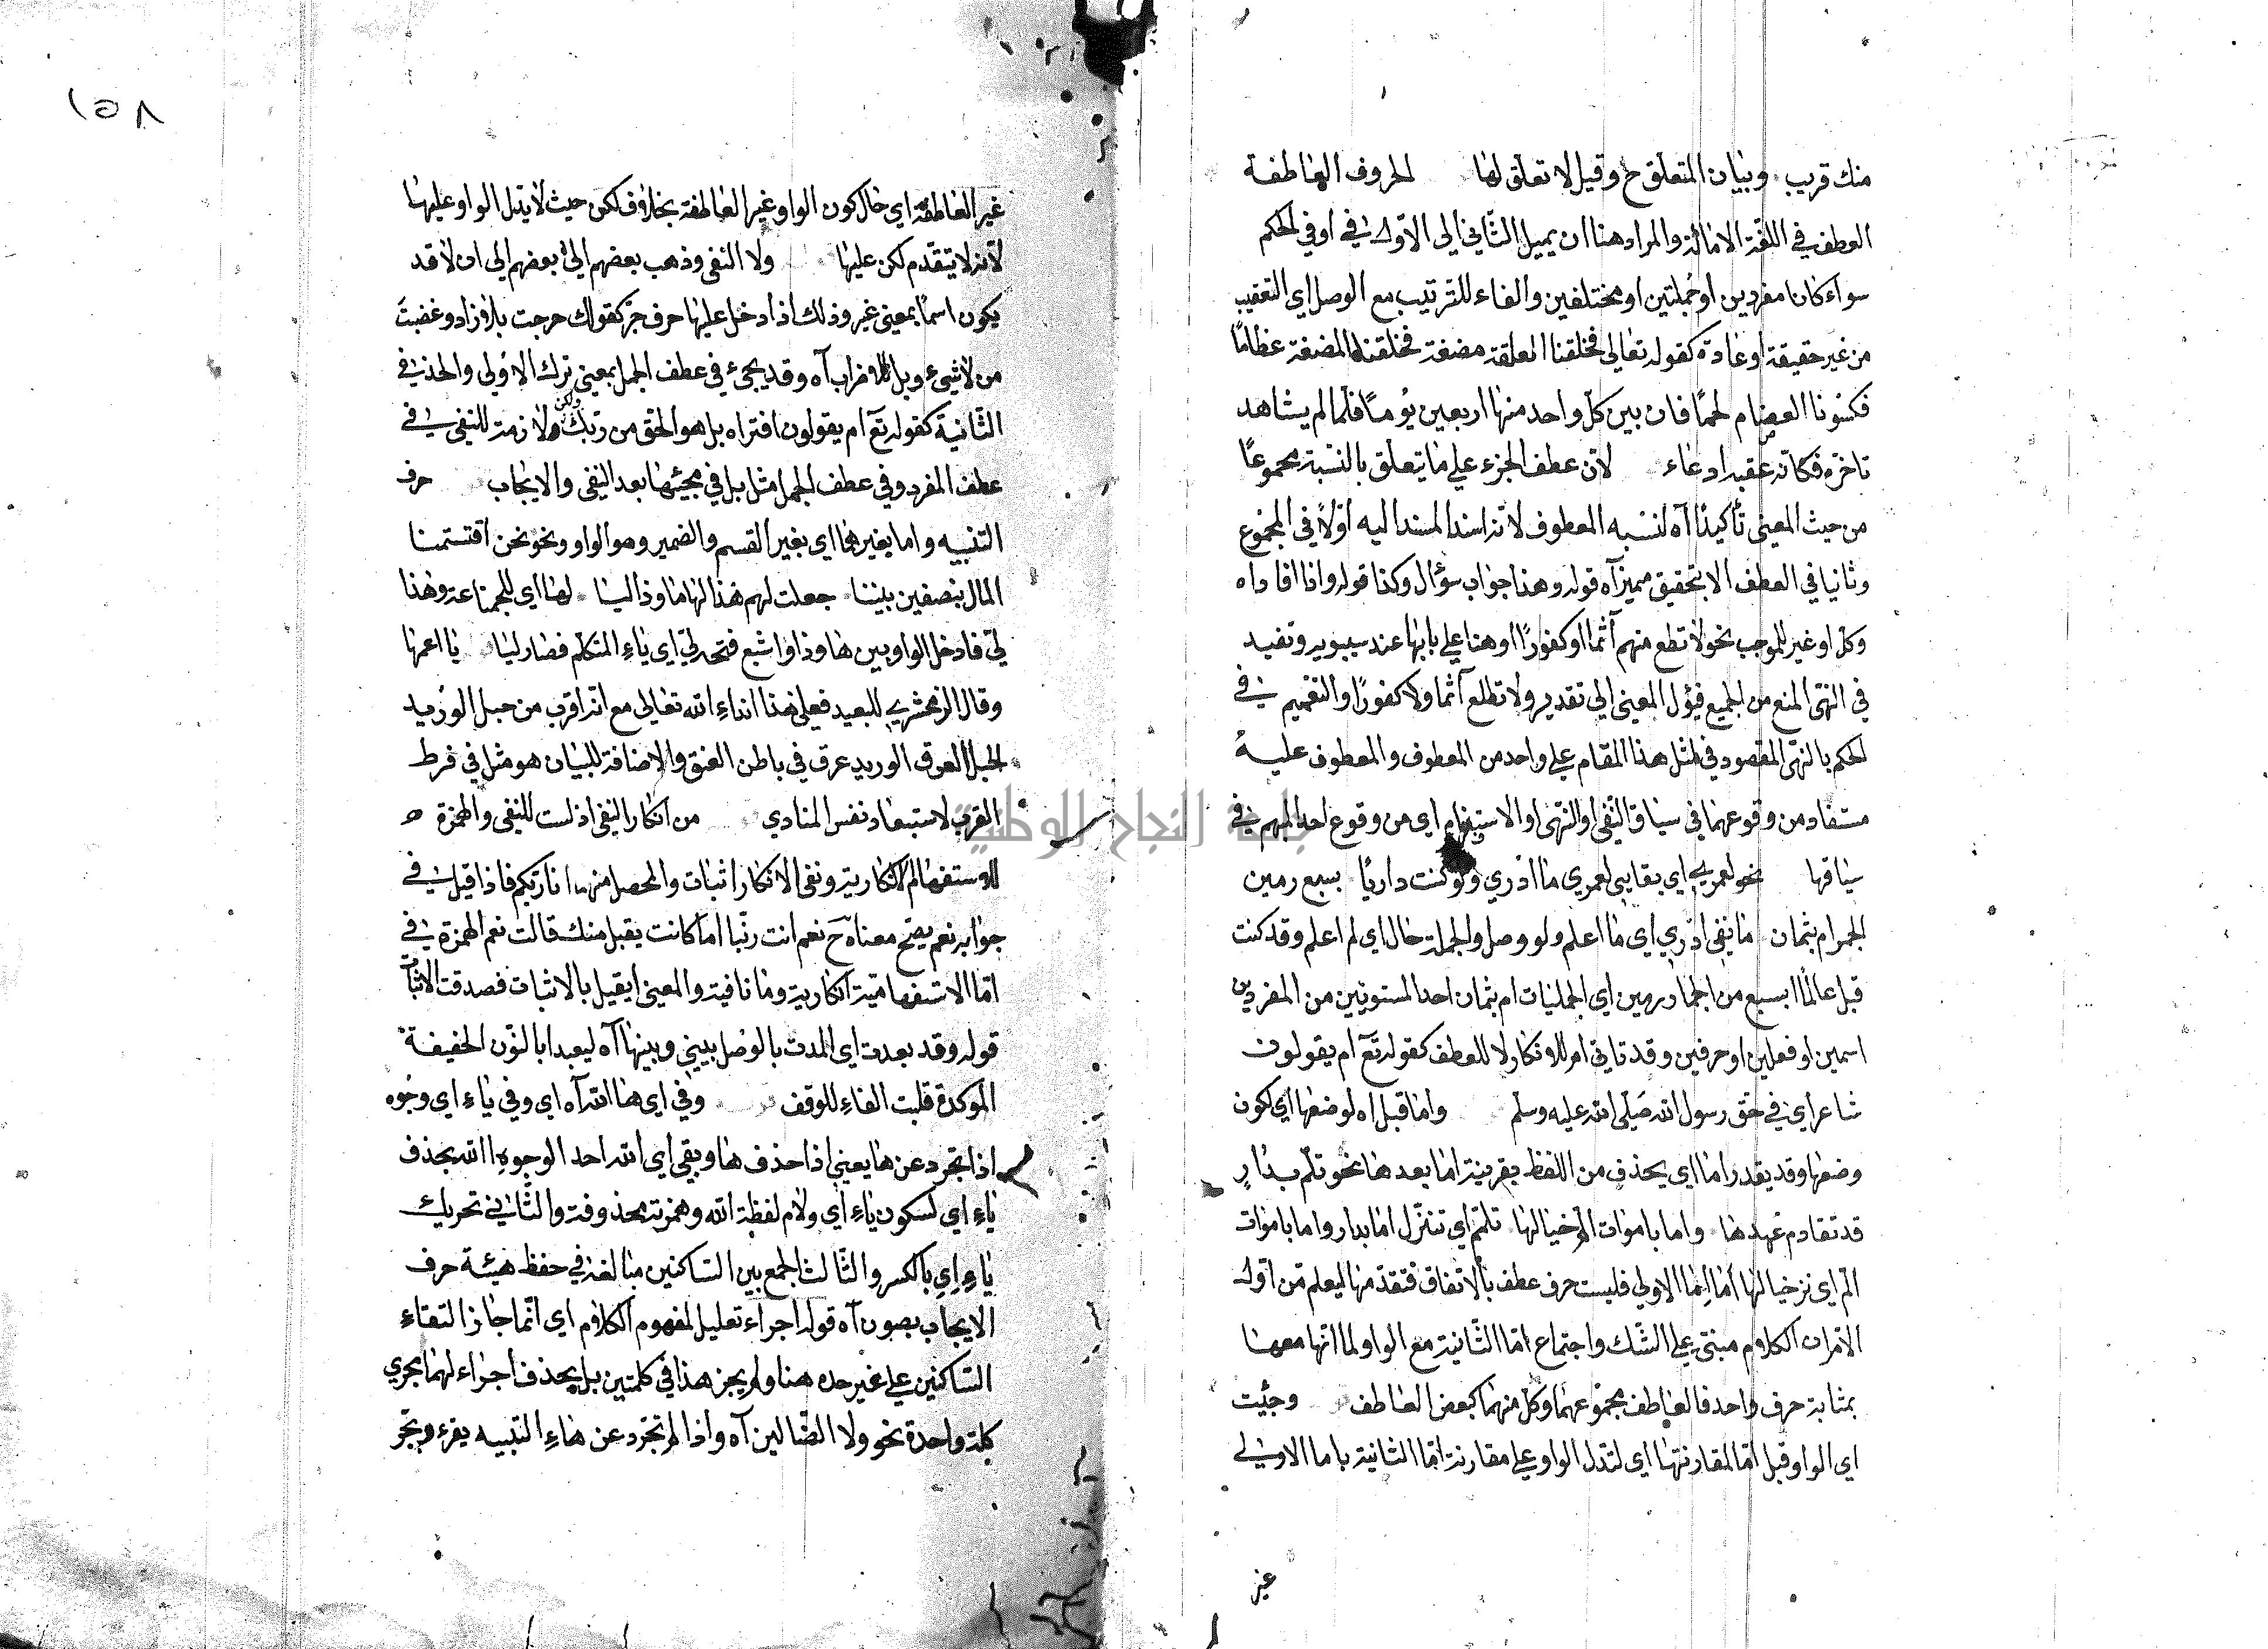 منك قريب وبيان المتعلق ح وقيل لا تعلق لها الحروف العاطفة
العطف في اللغة الامالة والمراد هنا ان يميل الثاني الى الاول في او في الحكم
سواء كانا مفردين او جملتين او مختلفين والفاء للترتيب مع الوصل اي التعقيب
من غير حقيقة او عادة كقوله تعالى فخلقنا العلقة مضغة فخلقنا المضغة عظاما
فكسونا العضام لحما فان بين كل واحد منها اربعين يوما فلما لم يشاهد
تاخره فكانه عقبه ادعاء لان عطف الجزء على ما يتعلق بالنسبة مجموعا
من حيث المعنى تأكيدا آه لنسبه المعطوف لانه اسند المسند اليه اولا في المجموع
وثانيا في العطف الا بتحقيق مميز آه قوله وهذا جواب سؤال وكذا قوله واذا افاداه
وكل او غير الموجب نحو لا تطع منهم آثما او كفورا او هنا على بابها عند سيبويه وتفيد
في النهى المنع من الجميع فيؤل المعنى الى تقدير ولا تطلع آثما ولا كفورا والتعميم في
الحكم بالنهى المقصود في مثل هذا المقام على واحد من المعطوف والمعطوف عليه
مستفاد من وقوعهما في سياق النفى او النهى او الاستفهام اي من وقوع احد المبهم في
سياقها نحو لعمري اي بقايى لعمري ما ادري ولو كنت داريا بسبع رمين
الجمر ام بثمان ما نفى ادري اي ما اعلم ولو وصل والجملة حال اي لم اعلم وقد كنت
قبل عالما ابسبع من الجمار رمين اي الجمليات ام بثمان احد المستويين من المفردين
اسمين او فعلين او حرفين وقد تاتي ام للانكار لا للعطف كقوله تع ام يقولون
شاعر اي في حق رسول الله صلى الله عليه وسلم واما قبل اه لوضعها اي لكون
وضعها وقد يقدر اما اي يحذف من اللفظ بقرينة اما بعد ها نحو تلم بدار
قد تقادم عهدها واما باموات الم خيالها تلم اي تنزل اما بدار واما باموات
الم اي نزخيالها اما انما الاولى فليست حرف عطف بالاتفاق فتقدمها ليعلم من اول
الامر ان الكلام مبنى على الشك واجتماع اما الثانية مع الواو لما انها معها
بمثابة حرف واحد فالعاطف مجموعهما وكل منهما كبعض العاطف وجئت
اي الواو قبل اما لمقارنتها اي لتدل الواو على مقارنة اما الثانية باما الاولى
غير
١٥٨
غير العاطفة اي حال كون الواو غير العاطفة بخلاف لكن حيث لا يدل الواو عليها
لانه لا يتقدم لكن عليها ولا النفى وذهب بعضهم الى بعضهم الى ان لا قد
يكون اسما بمعنى غير وذلك اذا دخل عليها حرف جر كقولك خرجت بلا زاد وغضبت
من لا شيء وبل للاضراب آه وقد يجيء في عطف الجمل بمعنى ترك الاولى والاخذ في
الثانية كقوله تع ام يقولون افتراه بل هو الحق من ربك ولكن لازمة للنفى في
عطف المفرد وفي عطف الجمل مثل بل في مجيئها بعد النفى والايجاب حرف
التنبيه واما بغيرهما اي بغير القسم والضمير وهو الواو ونحو نحن اقتسمنا
المال نصفين بيننا جعلت لهم هذا لها ها وذا ليا لها اي للجماعة وهذا
لي فادخل الواو بين ها وذا واشبع فتحه لي اي ياء المتكلم فصار ليا يا اعمها
وقال الزمخشري للبعيد فعلى هذا انداء الله تعالى مع انه اقرب من حبل الوريد
الحبل العرق الوريد عرق في باطن العنق والاضافة للبيان هو مثل في فرط
القرب لاستبعاد نفس المنادي من انكار النفى اذ لست للنفى والهمزة
للاستفهام الانكارية ونفى الانكار اثبات والمحصل منهما انا ربكم فاذا قيل في
جوابه نعم يصح معناه ح نعم انت ربنا اما كانت يقبل منك قالت نعم الهمزة في
اما الاستفهامية انكارية وما نافية والمعنى ايقبل بالاثبات فصدقت الاثبات
قوله وقد بعدت اي المدت بالوصل بيني وبينها آه ليعبدا بالنون الخفيفة
المؤكدة قلبت الفاء للوقف وفي اي ها الله آه اي وفي ياء اي وجوه
اذا تجرد عن ها يعني اذا حذف ها وبقي اي الله احد الوجوه الله بحذف
ياء اي لسكون ياء اي ولام لفظة الله وهمزته محذوفة والثاني تحريك
ياء اي بالكسر والثالث الجمع بين الساكنين مبالغة في حفظ هيئة حرف
الايجاب بصون آه قوله اجراء تعليل لمفهوم الكلام اي انما جاز التقاء
الساكنين على غير حده هنا ولم يجز هذا في كلمتين بل يحذف اجراء لهما مجري
كلمة واحدة نحو ولا الضالين آه واذا لم تجرد عن هاء التنبيه يقرء وبجر
جامعة النجاح الوطنية